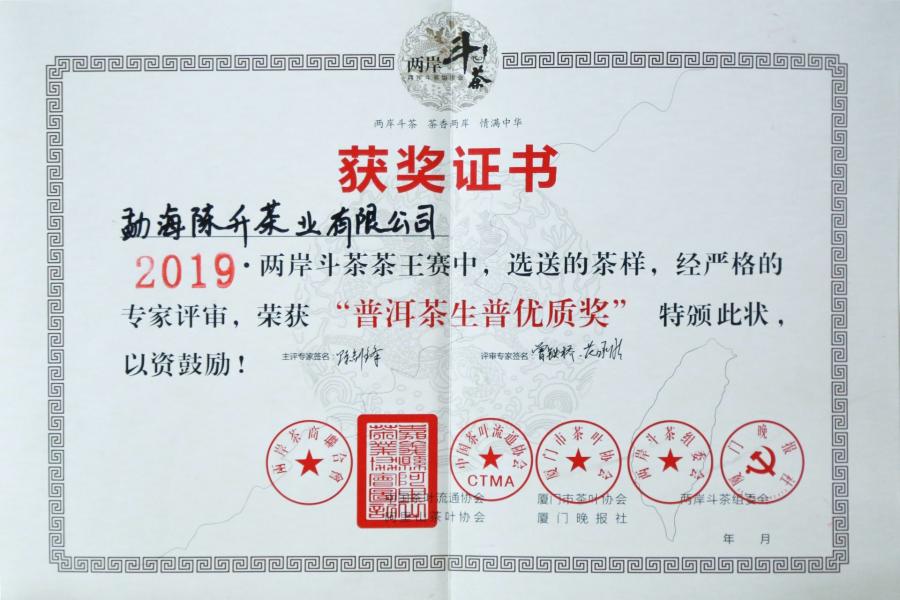 两岸斗茶
两岸斗茶 茶香两岸 情满中华
获奖证书
勐海陈升茶业有限公司
2019·两岸斗茶茶王赛中，选送的茶样，经严格的
专家评审，荣获 “普洱茶生普优质奖” 特颁此状，
以资鼓励！
主评专家签名：
评审专家签名：
两岸茶商聯合會
中国茶叶流通协会
CTMA
厦门市茶叶协会
两岸斗茶组委会
厦门晚报社
中国茶叶流通协会 厦门市茶叶协会 两岸斗茶组委会
阿里山茶叶协会 厦门晚报社
年 月